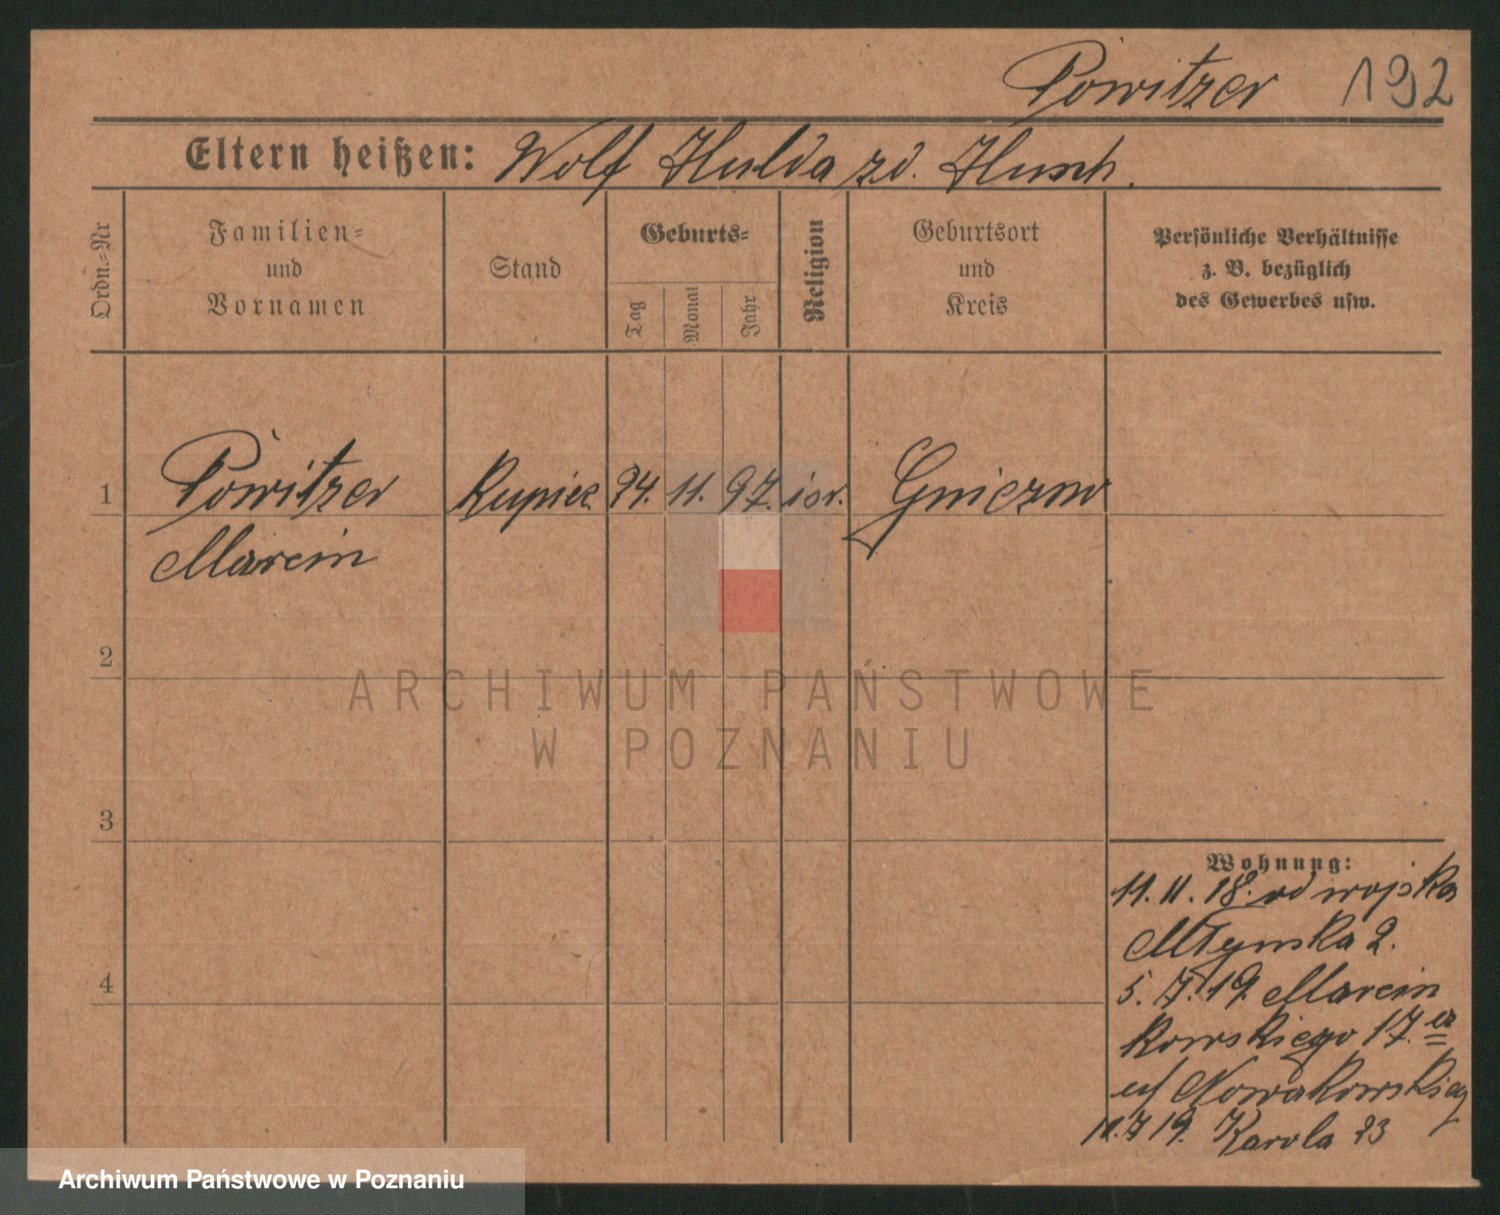 Powitzer 192
Eltern heißen: Wolf Hulda zd. Hirsch.
Ordn.-Nr
Familien-
und
Vornamen
Stand
Geburts-
Tag
Monat
Jahr
Religion
Geburtsort
und
Kreis
Persönliche Verhältnisse
z. B. bezüglich
des Gewerbes usw.
1 Powitzer Kupiec 24. 11. 97. isr. Gniezno
Marcin
2
3
4
Wohnung:
11. 11. 18. od wojska
Młynska 2.
5. 7. 19. Marcin
kowskiego 17.
u/ Nowakowskiej
11.7 19. Karola 23
ARCHIWUM PAŃSTWOWE
W POZNANIU
Archiwum Państwowe w Poznaniu